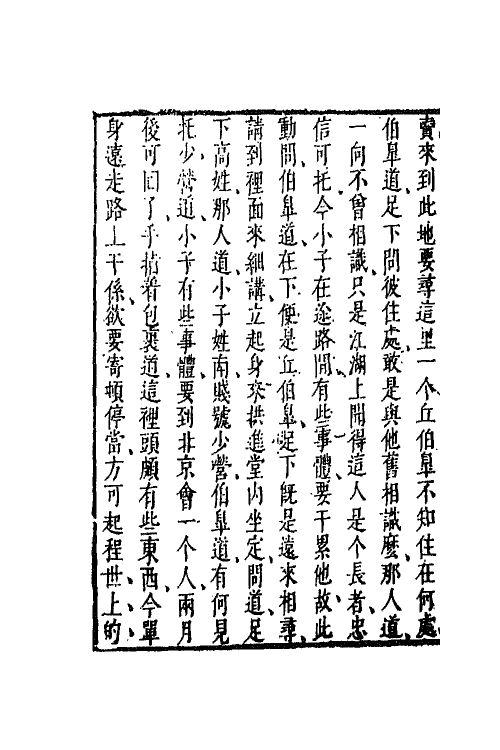 賫來到此地要尋這里一个丘伯皐不知住在何處
伯皐道足下問彼住處敢是與他舊相識麽那人道
一向不曾相識只是江湖上聞得這人是个長者忠
信可托今小子在途路間有些事體要干累他故此
動問伯皐道在下便是丘伯皐足下旣是遠來相尋
請到裡面來細講立起身來拱進堂内坐定問道足
下高姓那人道小子姓南賤號少營伯皐道有何見
托少營道小子有些事體要到北京會一个人兩月
後可囬了手指着包裹道這裡頭頗有些東西今單
身遠走路上干係欲要寄頓停當方可起程世上的